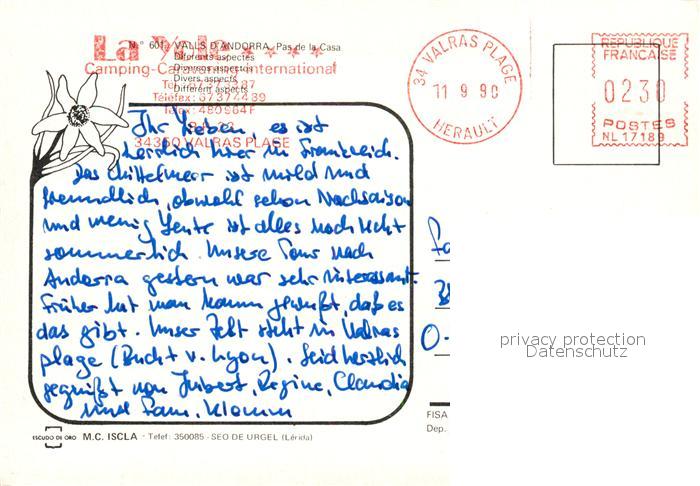 La Yole ★ ★ ★ ★
N.º 601 - VALLS D'ANDORRA, Pas de la Casa
Diferents aspectes
Camping-Caravaning International
Diversos aspectos
Divers aspects
Different aspects
Tél: 67373387
Téléfex: 67374439
Télex: 480564F
34350 VALRAS PLAGE
34 VALRAS PLAGE
11 9 90
HERAULT
REPUBLIQUE
FRANCAISE
0230
POSTES
NL 17189
Ihr Lieben, es ist
herrlich hier in Frankreich.
Das Mittelmeer ist mild und
freundlich, obwohl schon Nachsaison
und wenig Leute ist alles noch recht
sommerlich. Unsere Tour nach
Andorra gestern war sehr interessant.
Früher hat man kaum gewußt, daß es
das gibt. Unser Zelt steht in Valras
plage (Bucht v. Lyon). Seid herzlich
gegrüßt von Hubert, Regine, Claudia
und Fam. Klomm
Fa
O-
privacy protection
Datenschutz
FISA
Dep.
ESCUDO DE ORO M.C. ISCLA - Telef: 350085 - SEO DE URGEL (Lérida)